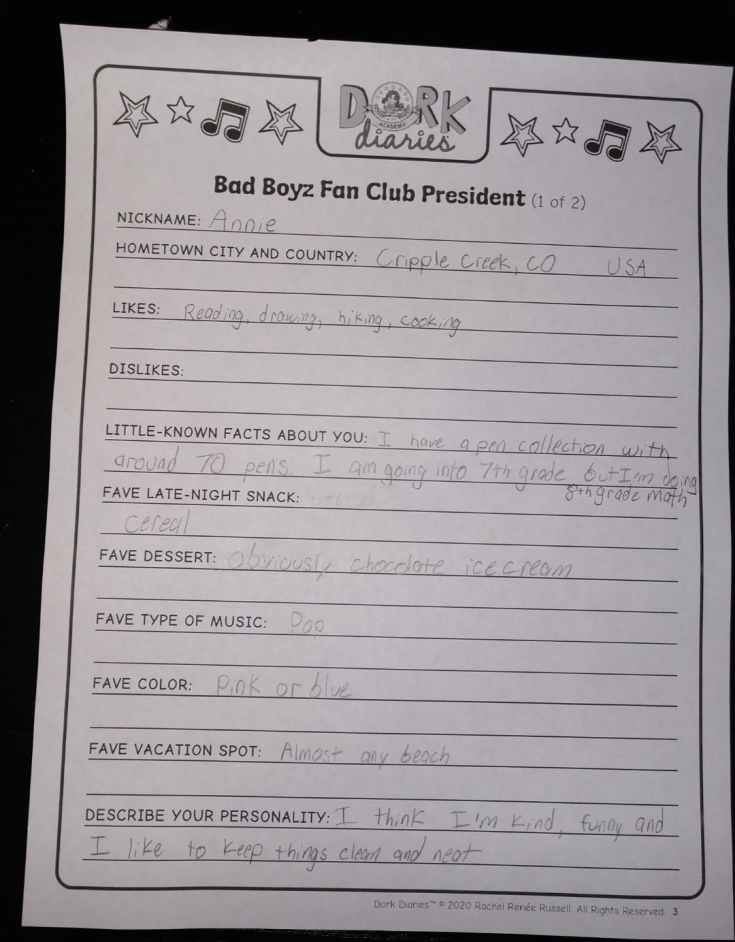 DORK
ACADEMY
diaries
Bad Boyz Fan Club President (1 of 2)
NICKNAME: Annie
HOMETOWN CITY AND COUNTRY: Cripple Creek, CO USA
LIKES: Reading, drawing, hiking, cooking
DISLIKES:
LITTLE-KNOWN FACTS ABOUT YOU: I have a pen collection with
around 70 pens. I am going into 7th grade but I'm doing
8th grade math
FAVE LATE-NIGHT SNACK:
cereal
FAVE DESSERT: Obviously chocolate ice cream
FAVE TYPE OF MUSIC: Pop
FAVE COLOR: Pink or blue
FAVE VACATION SPOT: Almost any beach
DESCRIBE YOUR PERSONALITY: I think I'm kind, funny and
I like to keep things clean and neat
Dork Diaries™ © 2020 Rachel Renée Russell. All Rights Reserved. 3